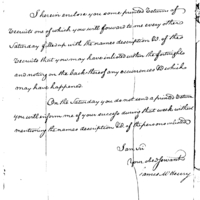 I herein enclose you some printed Returns of
Recruits one of which you will forward to me every other
Saturday filled up with the names description &c of the
Recruits that you may have inlisted within the fortnight
and noting on the back thereof any occurrences &c which
may have happened
On the Saturday you do not send a printed Return
you will inform me of your success during that week without
mentioning the names description &c of the persons inlisted
I am Sir
Your ob Servant
James McHenry